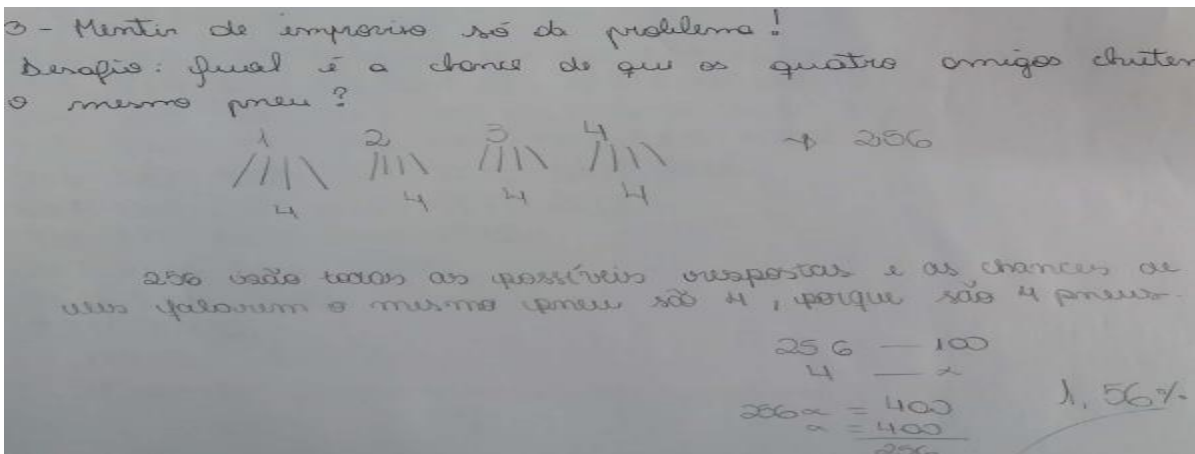 3 - Mentir de improviso só dá problema!
Desafio: Qual é a chance de que os quatro amigos chutem
o mesmo pneu?
1 2 3 4 → 256
4 4 4 4
256 serão todas as possíveis respostas e as chances de
eles falarem o mesmo pneu são 4, porque são 4 pneus.
256 — 100
4 — x
256x = 400
x = 400
256
1,56%